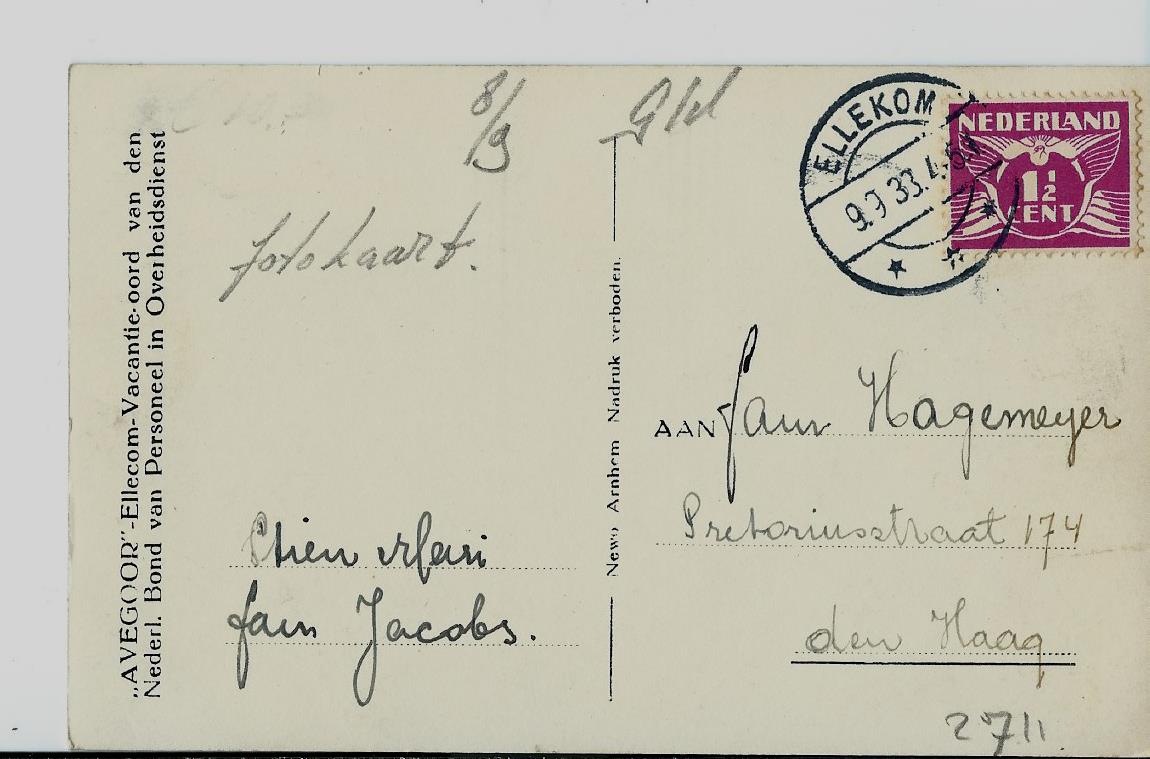 „AVEGOOR"-Ellecom-Vacantie-oord van den
Nederl. Bond van Personeel in Overheidsdienst
8/9
fotokaart.
Stien
fam Jacobs.
Newo Arnhem Nadruk verboden.
Gld
ELLEKOM
9.9 33.4-5
NEDERLAND
1½
CENT
AAN fam Hagemeyer
Pretoriusstraat 174
den Haag
2711